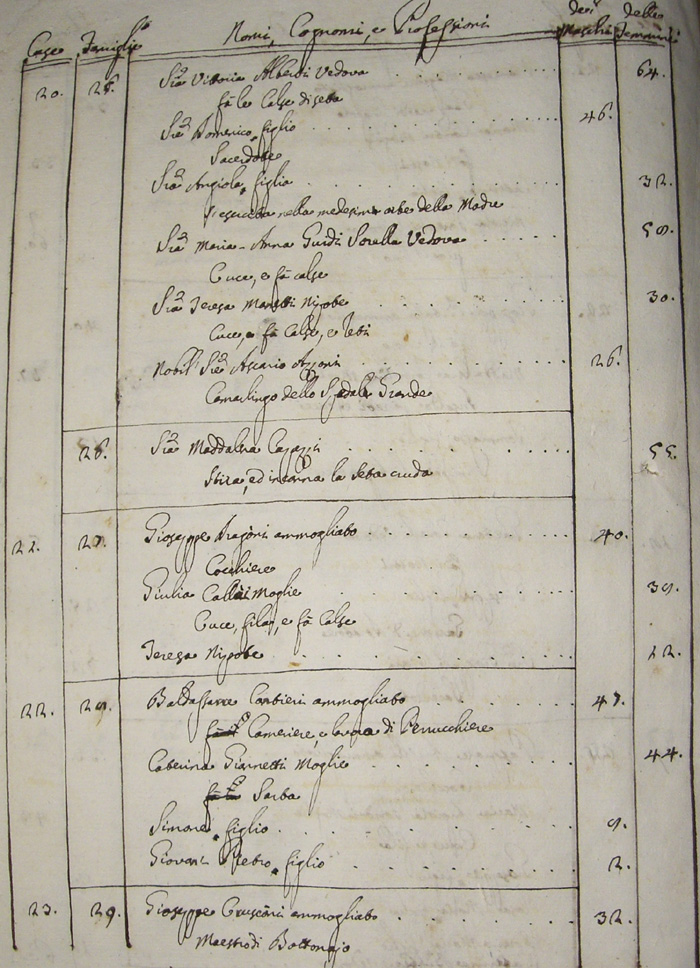 Case Famiglie Nomi, Cognomi, e Professioni dei Maschi delle Femmine
20. 25. Sig.ra Vittoria Alberti Vedova 64.
fà le Calze di seta
Sig.re Domenico figlio 46.
Sacerdote
Sig.ra Angiola figlia 32.
nella medesima arte della Madre
Sig.ra Maria-Anna Guidi Sorella Vedova
Cuce, e fà calze
Sig.ra Teresa Nipote 30.
Cuce, e fà Calze, e
Nobil Sig.re Ascanio 26.
Camarlingo dello Spedale Grande
26. Sig.ra Maddalena 55.
Stira, ed incanna la seta cruda
21. 27. Giuseppe ammogliato 40.
Cocchiere
Giulia Moglie 39.
Cuce, fila, e fà Calze
Teresa Nipote
22. 28. Baldassarre Corbieri ammogliato 47.
Cameriere, e lavora di Perrucchiere
Caterina Giannetti Moglie 44.
Sarta
Simone figlio 9.
Giovan Pietro figlio 2.
23. 29. Giuseppe ammogliato 32.
Maestro di Bottonajo